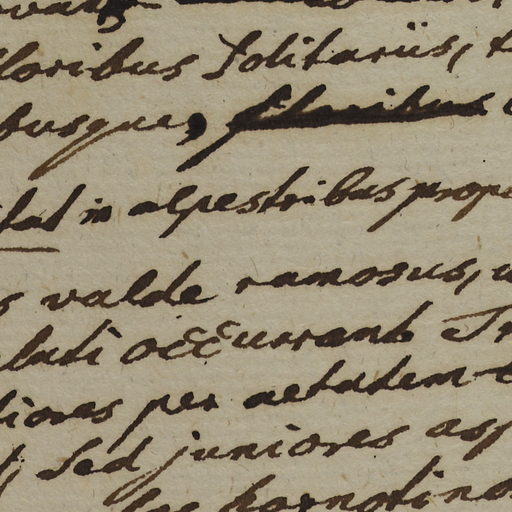 floribus solitariis, t
busque, floribus
tat in alpestribus prope
s valde ramosus, u
lati occurrant Tr
tiores per aetatem t
, sed juniores asp
hornotino